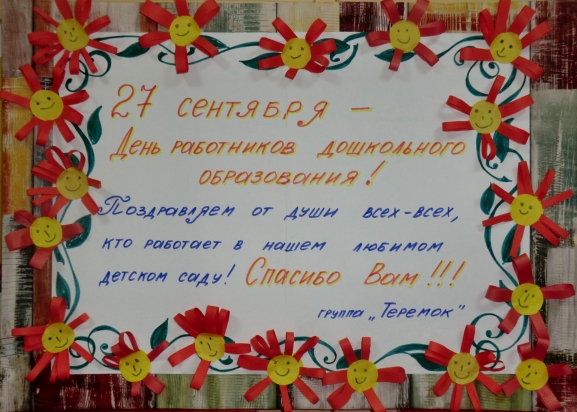 27 сентября –
День работников дошкольного
образования!
Поздравляем от души всех-всех,
кто работает в нашем любимом
детском саду! Спасибо Вам!!!
группа „Теремок"